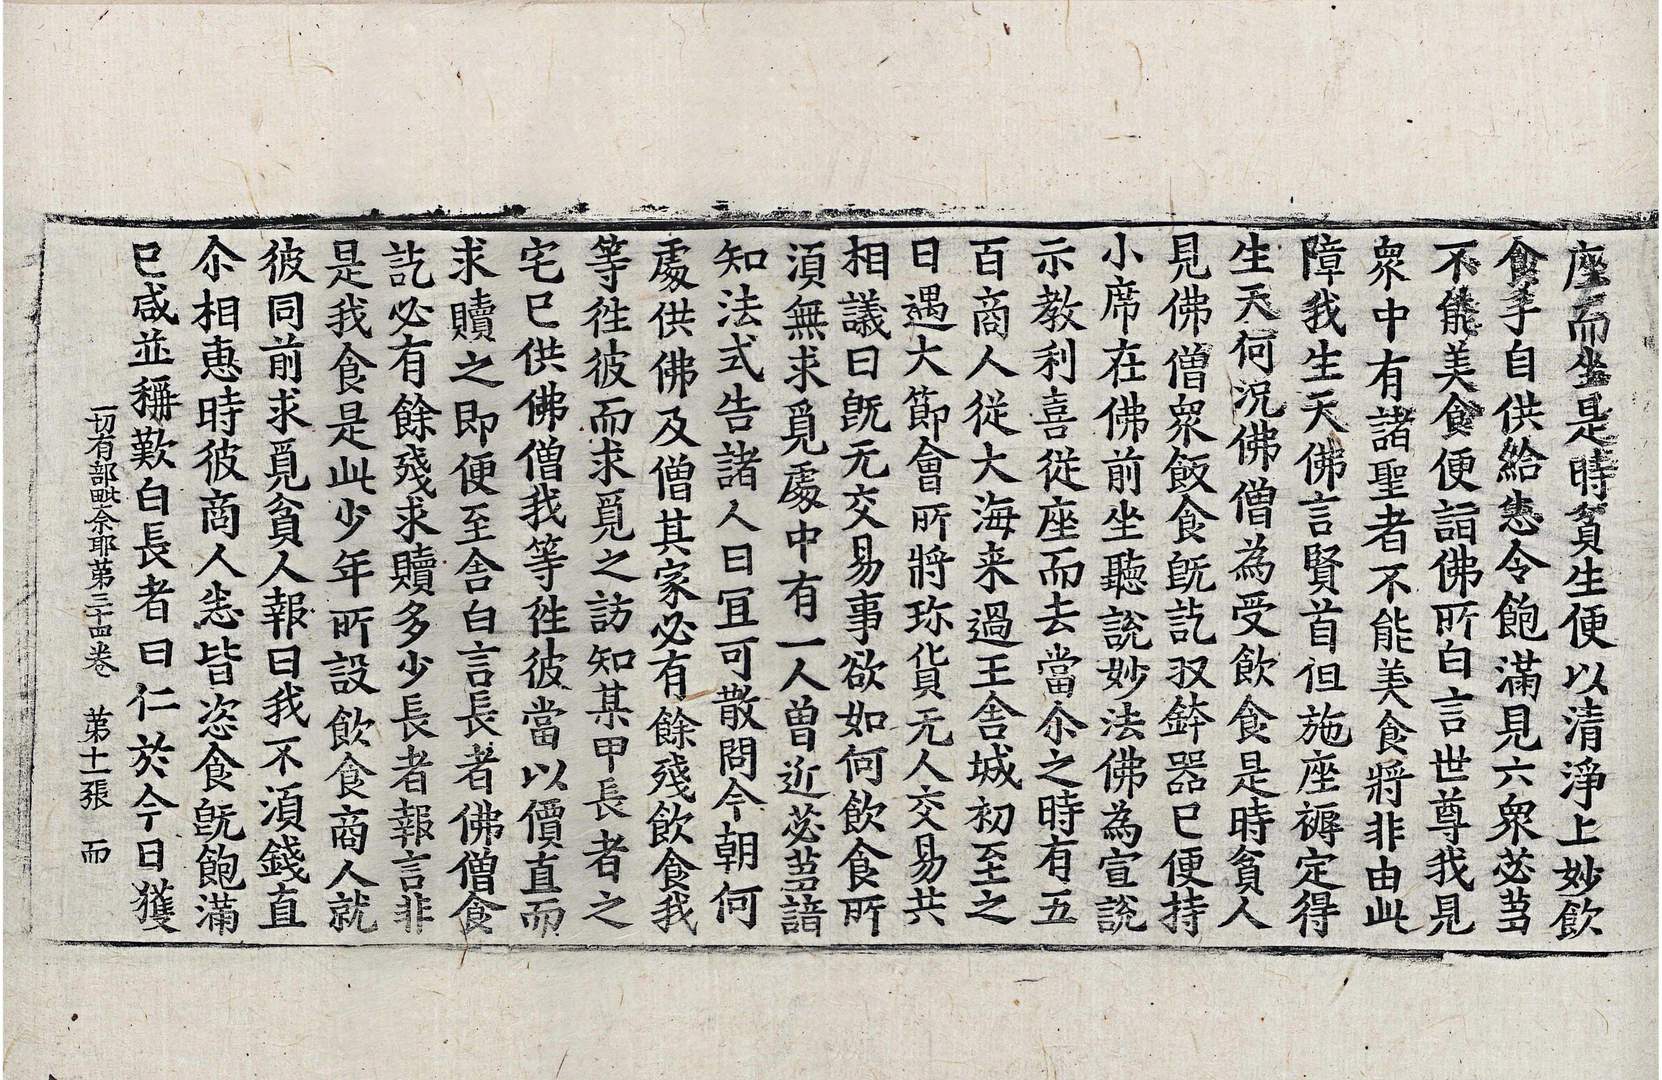 座而坐是時貧生便以清淨上妙飲
食手自供給悉令飽滿見六衆苾芻
不能美食便詣佛所白言世尊我見
衆中有諸聖者不能美食將非由此
障我生天佛言賢首但施座褥定得
生天何況佛僧為受飲食是時貧人
見佛僧衆飯食旣訖収鉢器已便持
小席在佛前坐聽說妙法佛為宣說
示教利喜從座而去當尒之時有五
百商人從大海来過王舍城初至之
日遇大節會所將珎貨无人交易共
相議曰旣无交易事欲如何飲食所
湏無求覓處中有一人曾近苾芻諳
知法式告諸人曰冝可散問今朝何
處供佛及僧其家必有餘殘飲食我
等徃彼而求覓之訪知某甲長者之
宅已供佛僧我等徃彼當以價直而
求贖之即便至舍白言長者佛僧食
訖必有餘殘求贖多少長者報言非
是我食是此少年所設飲食商人就
彼同前求覓貧人報曰我不湏錢直
尒相惠時彼商人悉皆恣食旣飽滿
已咸並稱歎白長者曰仁於今日獲
一切有部毗奈耶第三十四卷　第十一張　而